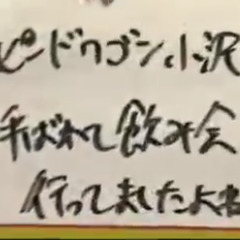 ピンドワゴン小沢
呼ばれて飲み会
行ってましたよね